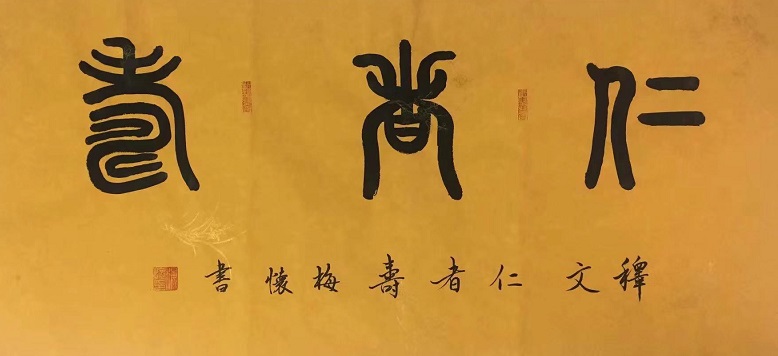 仁者壽
釋文仁者壽梅懷書